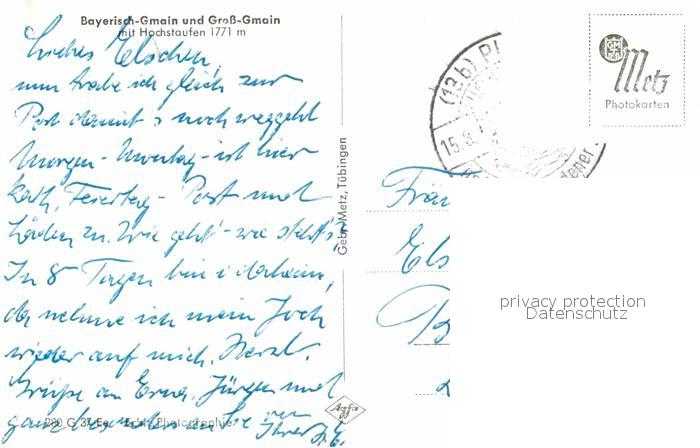 Bayerisch-Gmain und Groß-Gmain
mit Hochstaufen 1771 m
Liebes Elschen,
nun trabe ich gleich zur
Post damit's noch weggeht
Morgen - Montag - ist hier
kath. Feiertag - Post und
Läden zu. Wie geht's - wie steht's?
In 8 Tagen bin i daheim,
da nehme ich mein Joch
wieder auf mich. Herzl.
Grüße an Erna, Jürgen und
ganz besonders an Sie von
Ihrer
280 G 37 Ee Echte Photographie
Agfa
Gebr. Metz, Tübingen
(13b)
15.8.
Metz
Photokarten
Fräu
Els
B
privacy protection
Datenschutz